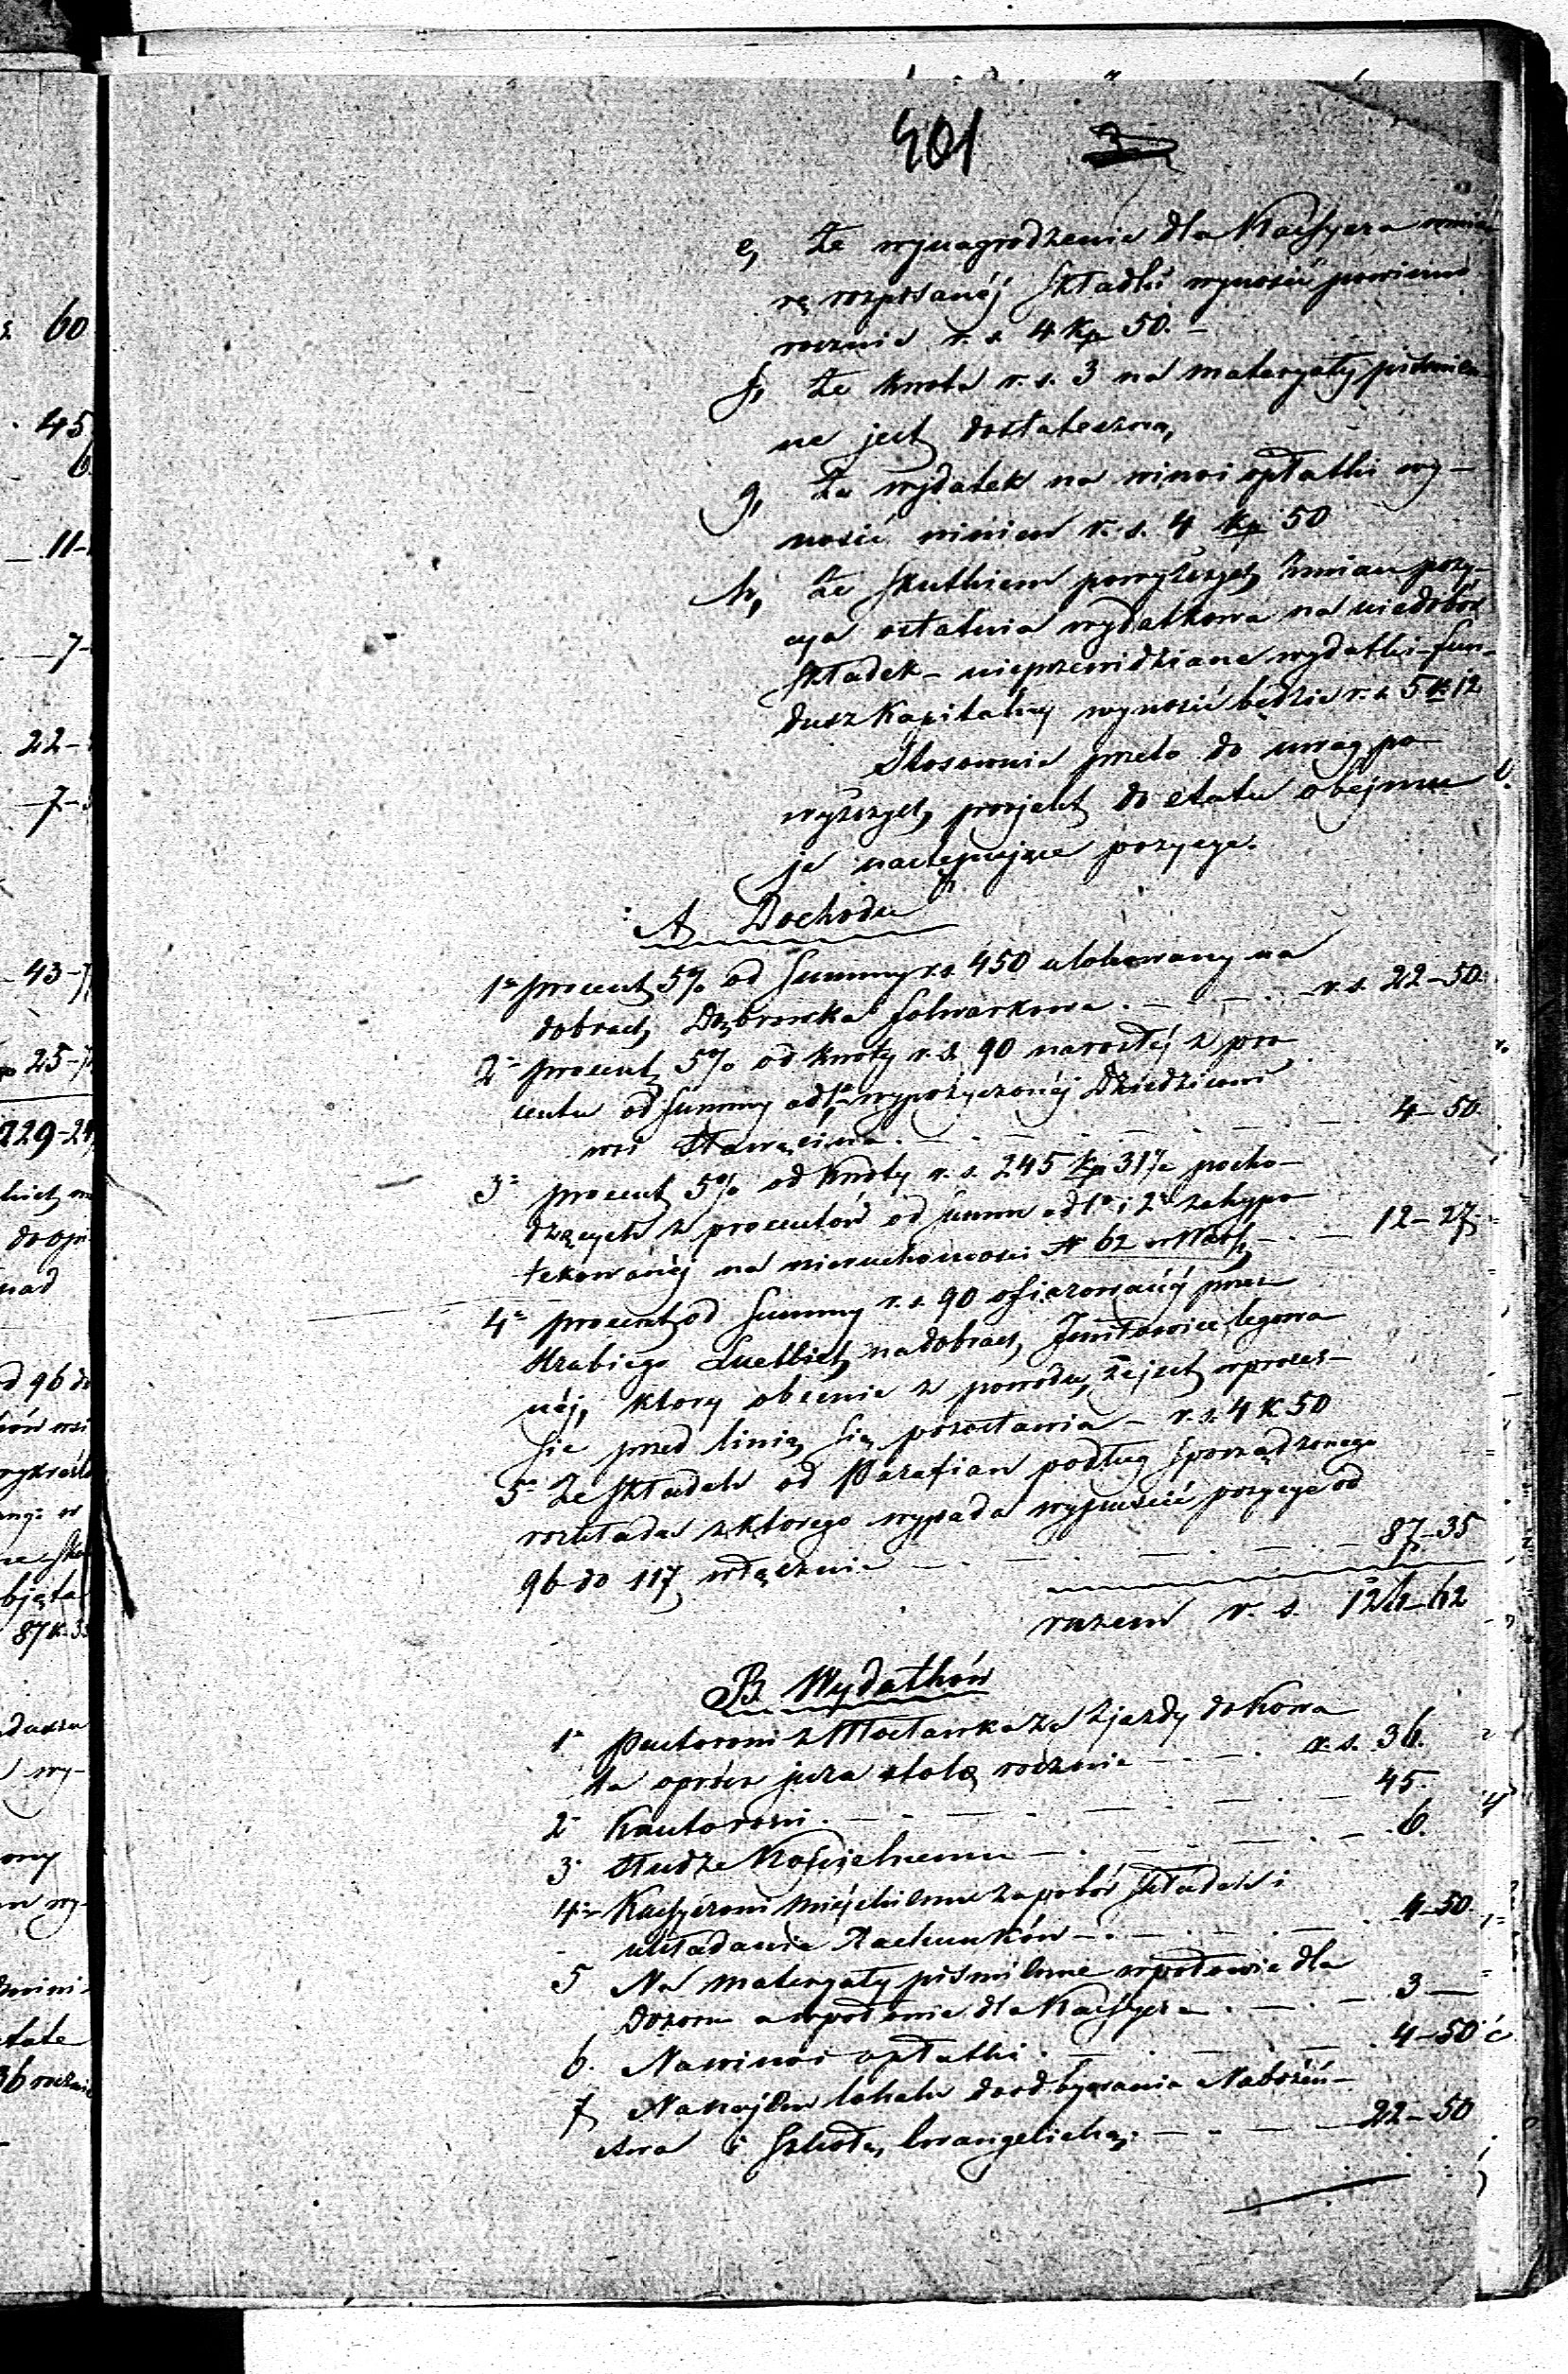 401 3
e, Że wynagrodzenie dla Kassyera w mia
rę rozpisanéj składki wynosić powinno
rocznie r. s. 4 kp 50. –
f, Że kwota r. s. 3 na materyały piśmien
ne jest dostateczna,
g, Że wydatek na wino i opłatki wy–
nosić winien r. s. 4 kp 50
h, Że skutkiem powyższych zmian pozy–
cya ostatnia wydatkowa na niedobór
składek – nieprzewidziane wydatki – fun–
dusz Kapitalny wynosić będzie r. s. 5 k 12
Stosownie przeto do uwag po
wyższych, projekt do etatu obejmu
je następujące pozycye.
A, Dochodu
1° procent 5% od Summy r. s. 450 ulokowany na
dobrach Dąbrowka folwarkowa . – . – . – r. s. 22–50.
2° procent 5% od kwoty r. s. 90 narosłéj z pro
centu od Summy ad 1° wypożyczonéj Dziedzicowi
wsi . – . – . – . – 4–50.
3° procent 5% od kwoty r. s. 245 kp 31½ pocho–
dzących z procentów od summ ad 1° i 2° zahypo
tekowanéj na nieruchomości N 62 w . – . – 12–27
4° procent od Summy r. s. 90 ofiarowanéj przez
Hrabiego na dobrach, legowa
néj, ktory obecnie z powodu, że jest w proces–
sie przed linią się pozostawia – r. s. 4 k 50
5° Ze składek od Parafian podług sporządzonego
rozkładu z ktorego wypada wypuścić pozycye od
96 do 117 włącznie – . – . – . – . – 87–35
razem r. s. 126–62
B. Wydatków
1° Pastorowi z Włocławka za zjazdy do Kowa
la oprócz jura stolę rocznie – . – . r. s. 36.
2° Kantorowi . – . – . – . – . – 45.
3° Słudze Kościelnemu – . – . – . – 6.
4° Kassyerowi miejskiemu za pobór składek i
układanie Rachunków – . – . – . – 4–50.
5 Na materyały piśmienne w połowie dla
Dozoru a w połowie dla Kassyera . – . – 3 –
6. Na wino i opłatki . – . – . – . 4–50
7, Na najem lokalu do odbywania Nabożeń–
stwa i Szkołę Ewangelicką . – . – 22–50
60
45
6.
11–
7–
22–
7–
43–
25–
229–24